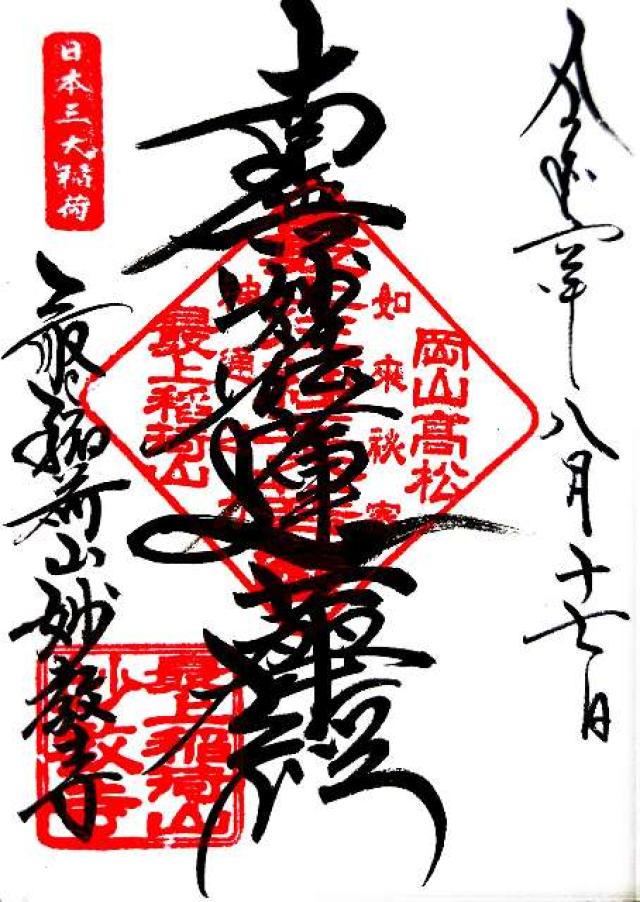 八月十七日
南無妙法蓮華経
如来秘密
神通之力
岡山高松
最上稲荷山
日本三大稲荷
最上稲荷山妙教寺
最上稲荷山
妙教寺